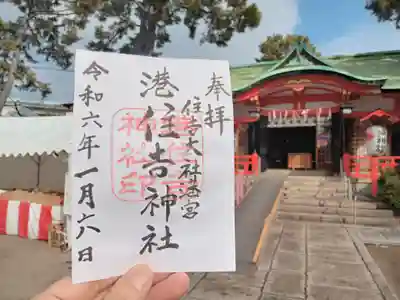 奉拝
住吉大社遥宮
港住吉神社
令和六年一月六日